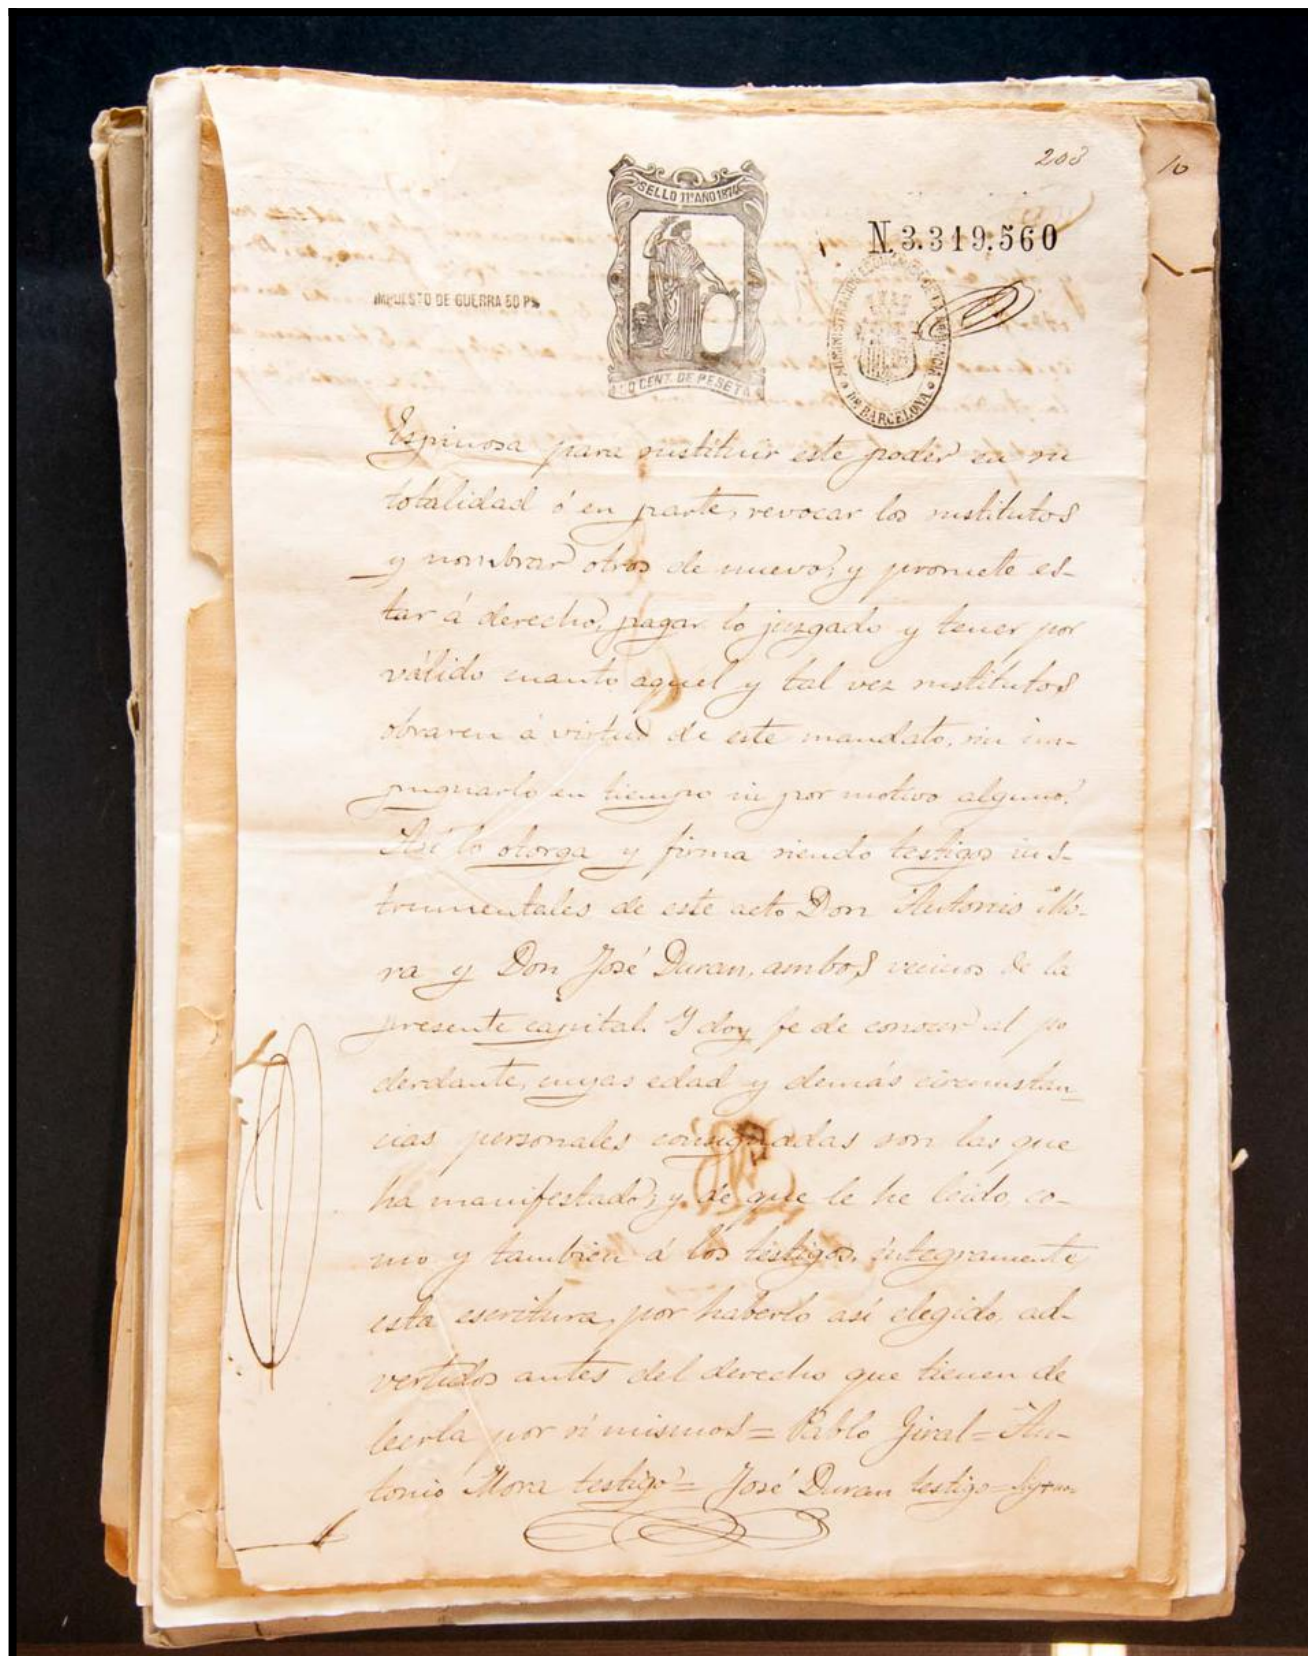 203
10
SELLO 11º AÑO 1874
N.3.319.560
IMPUESTO DE GUERRA 50 Ps
ADMINISTRACION ECONOMICA DE LA PROVINCIA
DE BARCELONA
CENT. DE PESETA
Espinosa para sustituir este poder en su
totalidad ó en parte, revocar los sustitutos
y nombrar otros de nuevo, y promete es-
tar á derecho, pagar lo juzgado y tener por
válido cuanto aquel y tal vez sustitutos
obraren á virtud de este mandato, sin im-
pugnarlo en tiempo ni por motivo alguno.
Así lo otorga y firma siendo testigos ins-
trumentales de este acto Don Antonio Mo-
ra y Don José Duran, ambos vecinos de la
presente capital. Y doy fe de conocer al po
derdante, cuyas edad y demás circunstan-
cias personales consignadas son las que
ha manifestado; y de que le he leido, co-
mo y tambien á los testigos, integramente
esta escritura, por haberlo asi elegido, ad-
vertidos antes del derecho que tienen de
leerla por si mismos = Pablo Giral = An-
tonio Mora testigo = José Duran testigo =